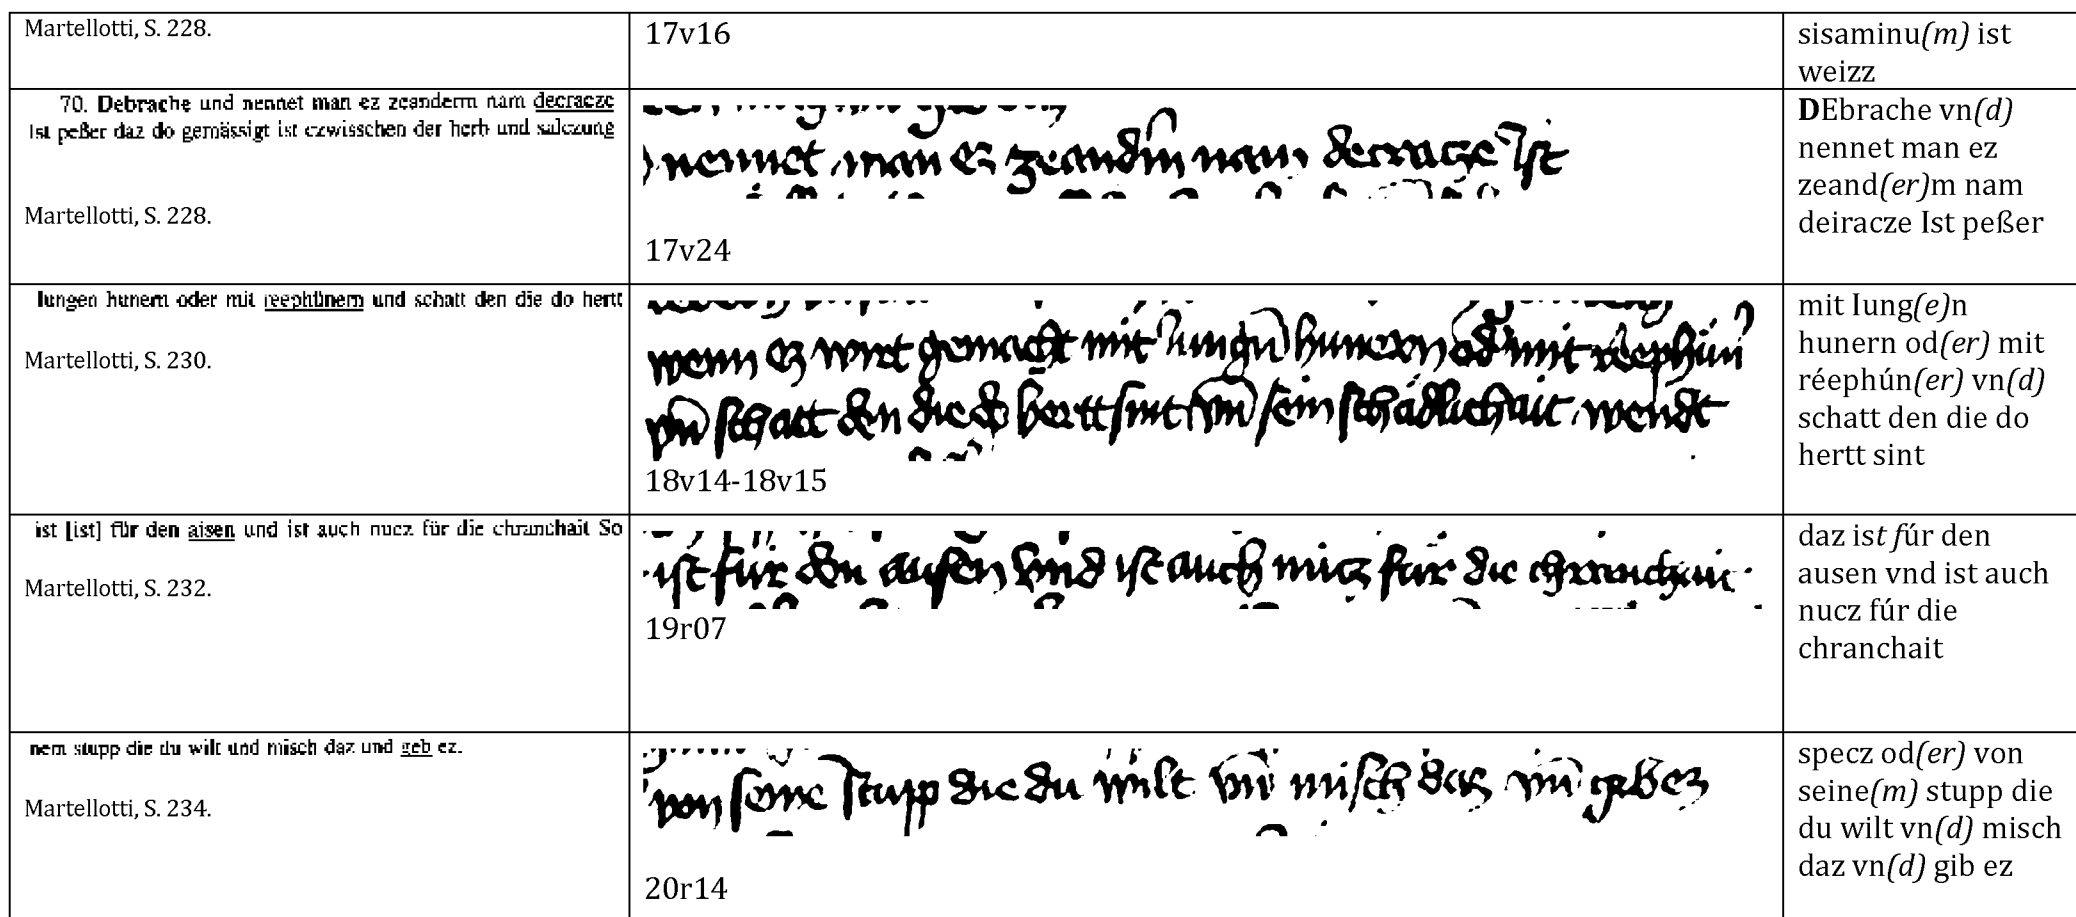 Martellotti, S. 228.
17v16
sisaminu(m) ist
weizz
70. Debrache und nennet man ez zeanderm nam decracze
Ist peßer daz do gemässigt ist czwisschen der herb und salczung
Martellotti, S. 228.
nennet man ez zeandm nam derracze Ist
17v24
DEbrache vn(d)
nennet man ez
zeand(er)m nam
deiracze Ist peßer
lungen hunern oder mit reephünern und schatt den die do hertt
Martellotti, S. 230.
wenn ez wirt gemacht mit Iungn hunern od mit réephún
vn schatt den die do hertt sint vn sein schádlichait wendt
18v14-18v15
mit Iung(e)n
hunern od(er) mit
réephún(er) vn(d)
schatt den die do
hertt sint
ist [ist] für den aisen und ist auch nucz für die chranchait So
Martellotti, S. 232.
ist fúr den ausen vnd ist auch nucz fúr die chranchait
19r07
daz ist fúr den
ausen vnd ist auch
nucz fúr die
chranchait
nem stupp die du wilt und misch daz und geb ez.
Martellotti, S. 234.
von seine stupp die du wilt vn misch daz vn geb ez
20r14
specz od(er) von
seine(m) stupp die
du wilt vn(d) misch
daz vn(d) gib ez